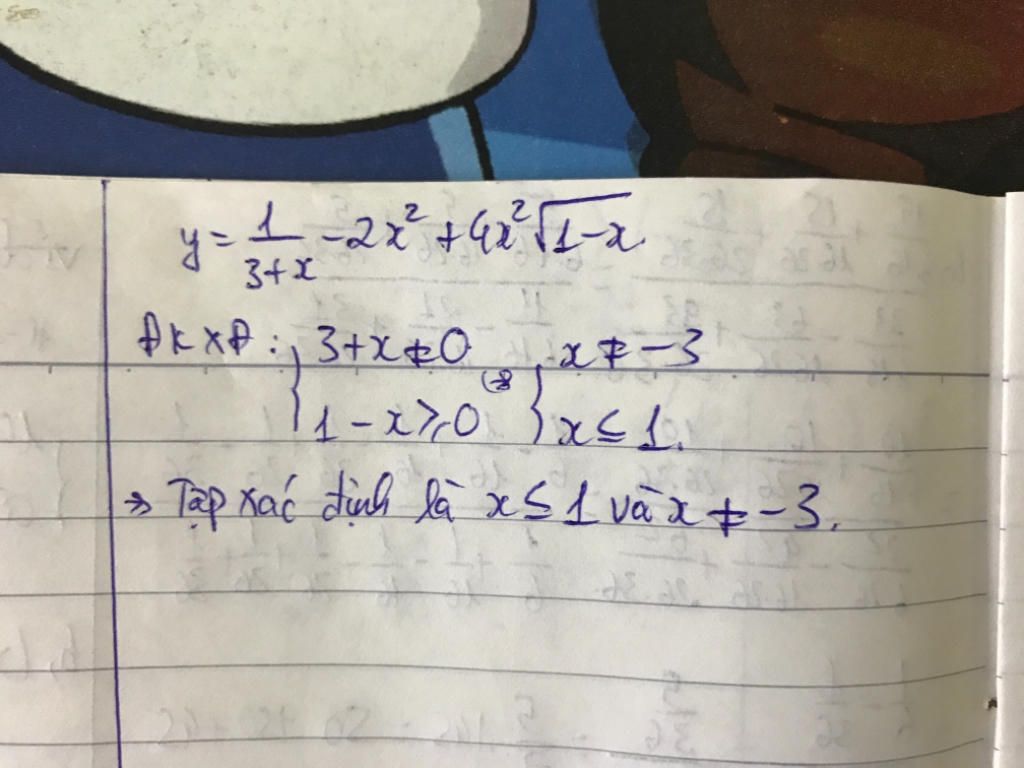 y = 1/(3+x) - 2x² + 4x²√(1-x).
ĐKXĐ: { 3+x ≠ 0 (⇒) { x ≠ -3
1-x ≥ 0 x ≤ 1.
⇒ Tập xác định là x ≤ 1 và x ≠ -3.